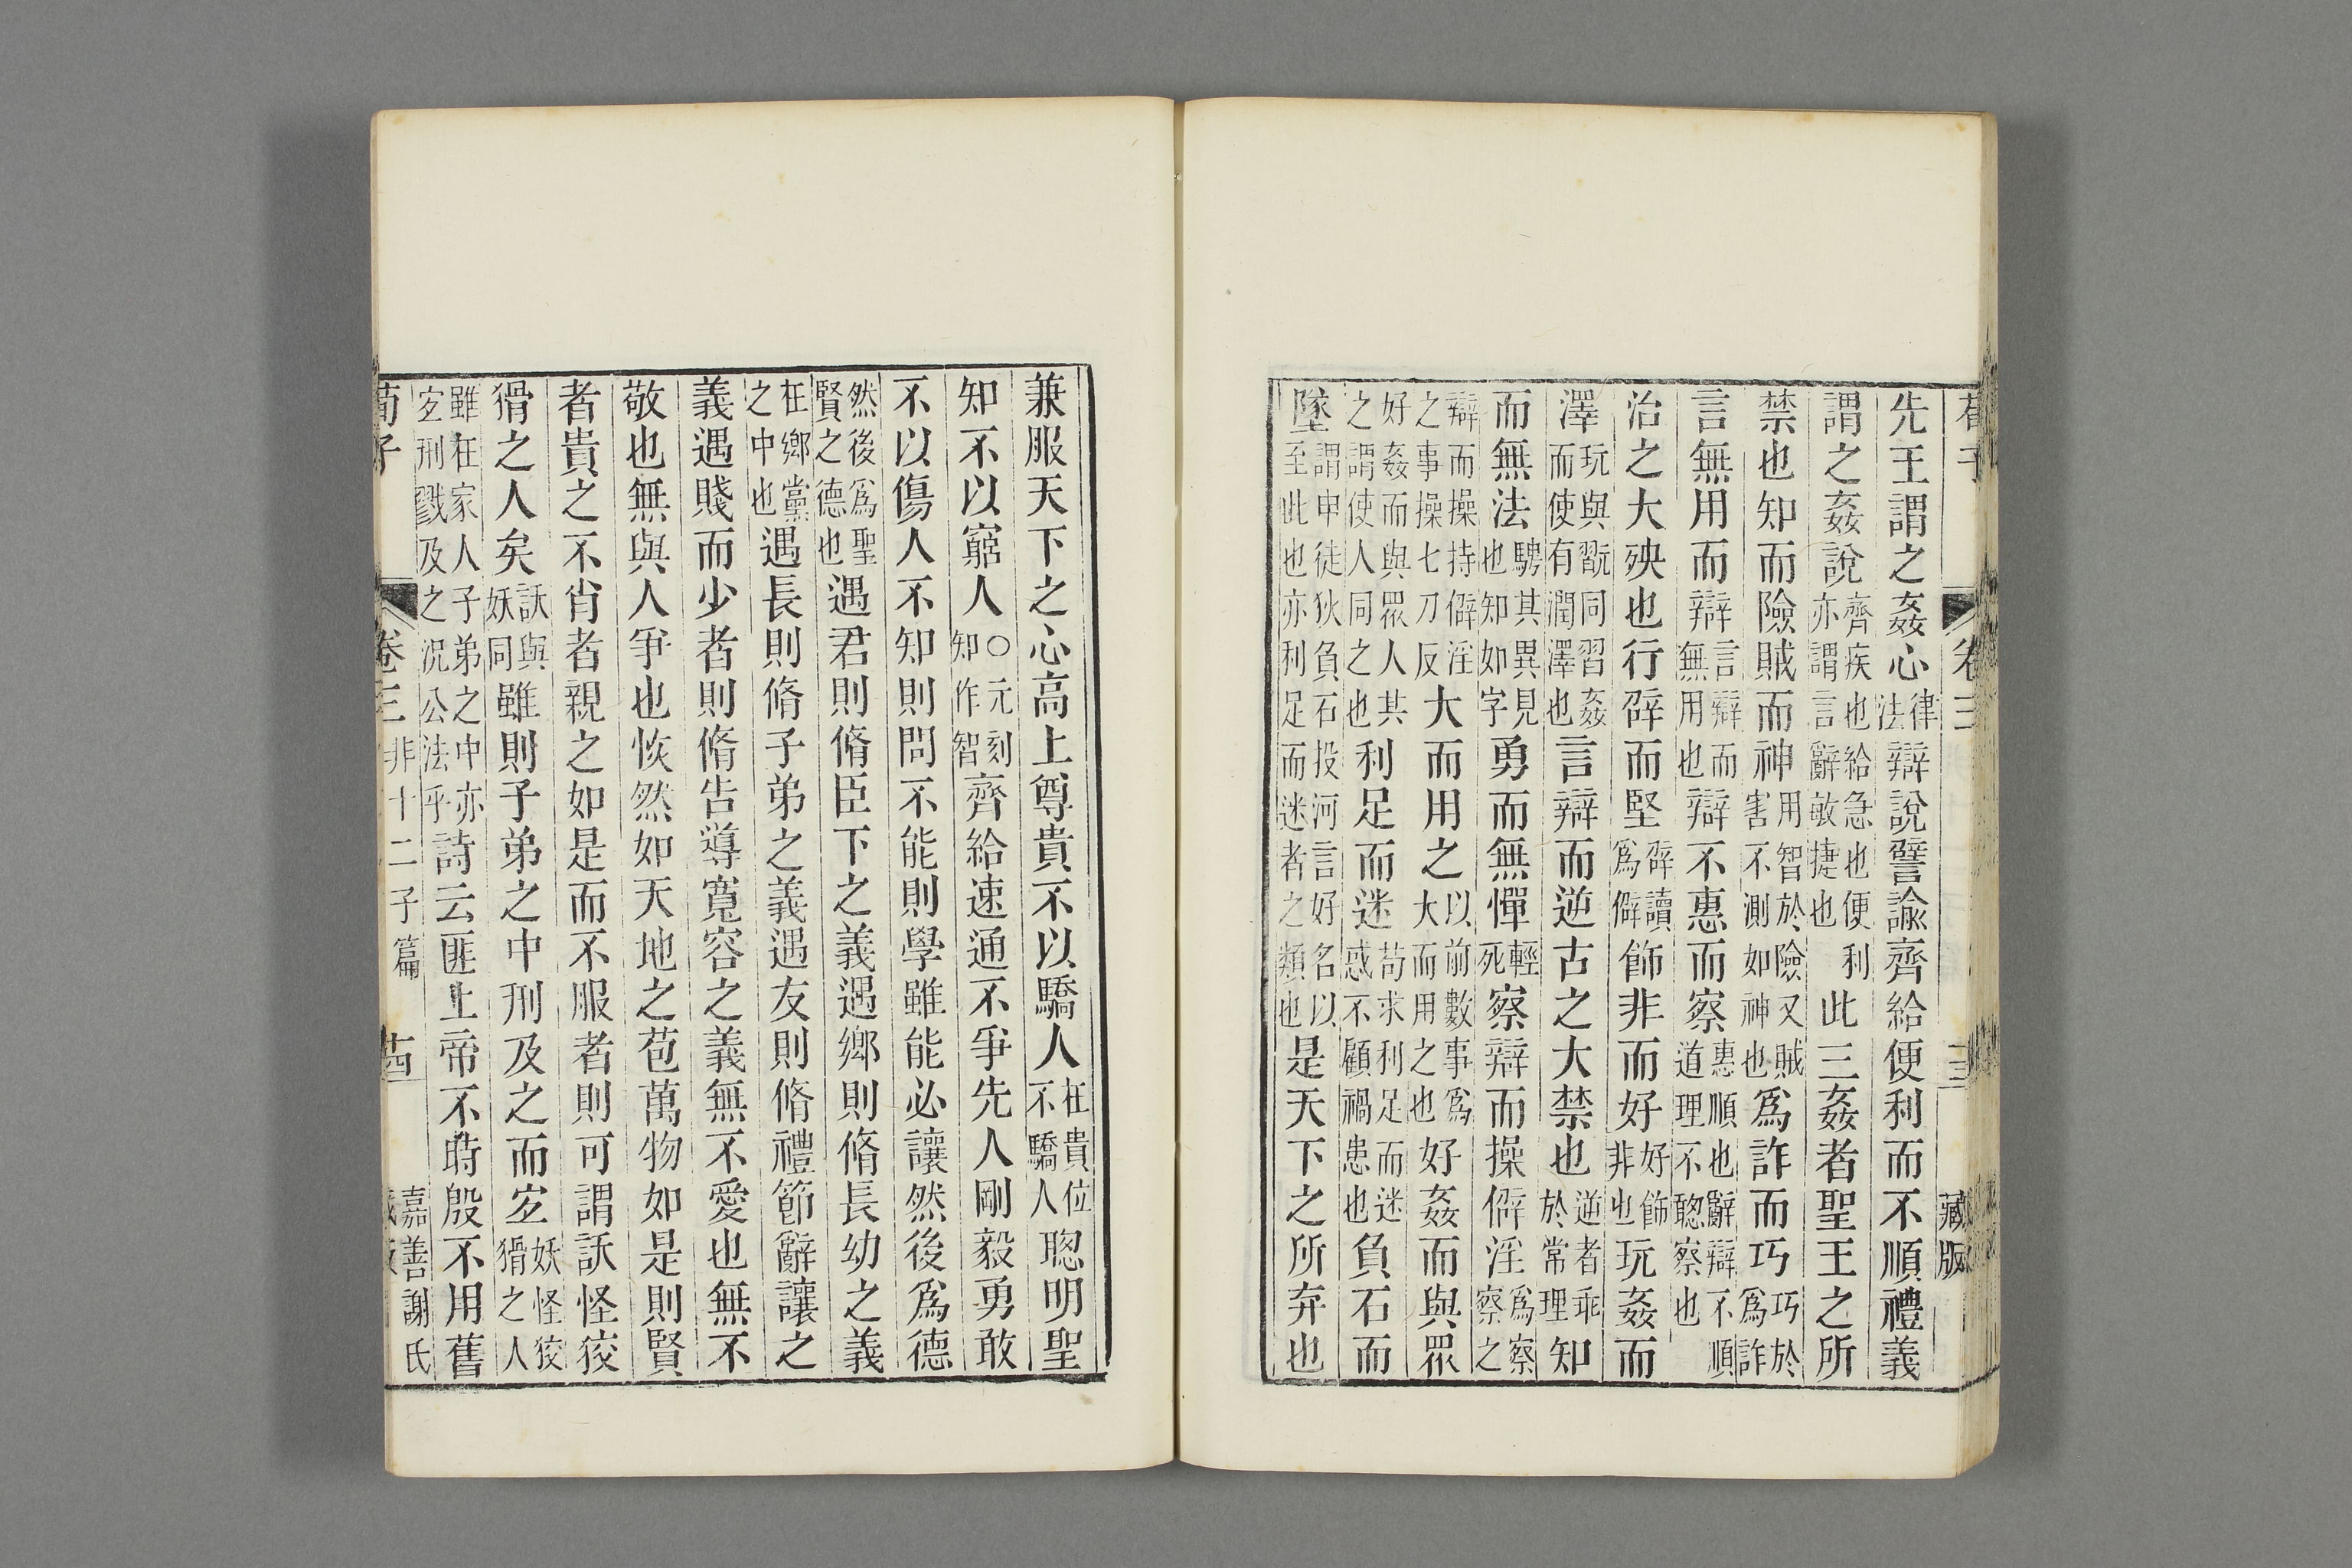 荀子 卷三 藏版
先王謂之姦心律法辯說譬諭齊給便利而不順禮義
謂之姦說齊疾也給急也便利亦謂言辭敏捷也此三姦者聖王之所
禁也知而險賊而神用智於險又賊害不測如神也爲詐而巧巧於爲詐
言無用而辯言辯而無用也辯不惠而察惠順也辭辯不順道理不聰察也
治之大殃也行辟而堅辟讀爲僻飾非而好好飾非也玩姦而
澤玩與翫同習姦而使有潤澤也言辯而逆古之大禁也逆者乖於常理知
而無法騁其異見也知如字勇而無憚輕死察辯而操僻淫爲察察之
辯而操持僻淫之事操七刀反大而用之以前數事爲大而用之也好姦而與眾
好姦而與眾人共之謂使人同之也利足而迷苟求利足而迷惑不顧禍患也負石而
墜謂申徒狄負石投河言好名以至此也亦利足而迷者之類也是天下之所弃也
兼服天下之心高上尊貴不以驕人在貴位不驕人聰明聖
知不以窮人○元刻知作智齊給速通不爭先人剛毅勇敢
不以傷人不知則問不能則學雖能必讓然後爲德
然後爲聖賢之德也遇君則脩臣下之義遇鄉則脩長幼之義
在鄉黨之中也遇長則脩子弟之義遇友則脩禮節辭讓之
義遇賤而少者則脩告導寬容之義無不愛也無不
敬也無與人爭也恢然如天地之苞萬物如是則賢
者貴之不肖者親之如是而不服者則可謂訞怪狡
猾之人矣訞與妖同雖則子弟之中刑及之而宐妖怪狡猾之人
雖在家人子弟之中亦宐刑戮及之況公法乎詩云匪上帝不時殷不用舊
荀子 卷三 非十二子篇 十四 嘉善謝氏